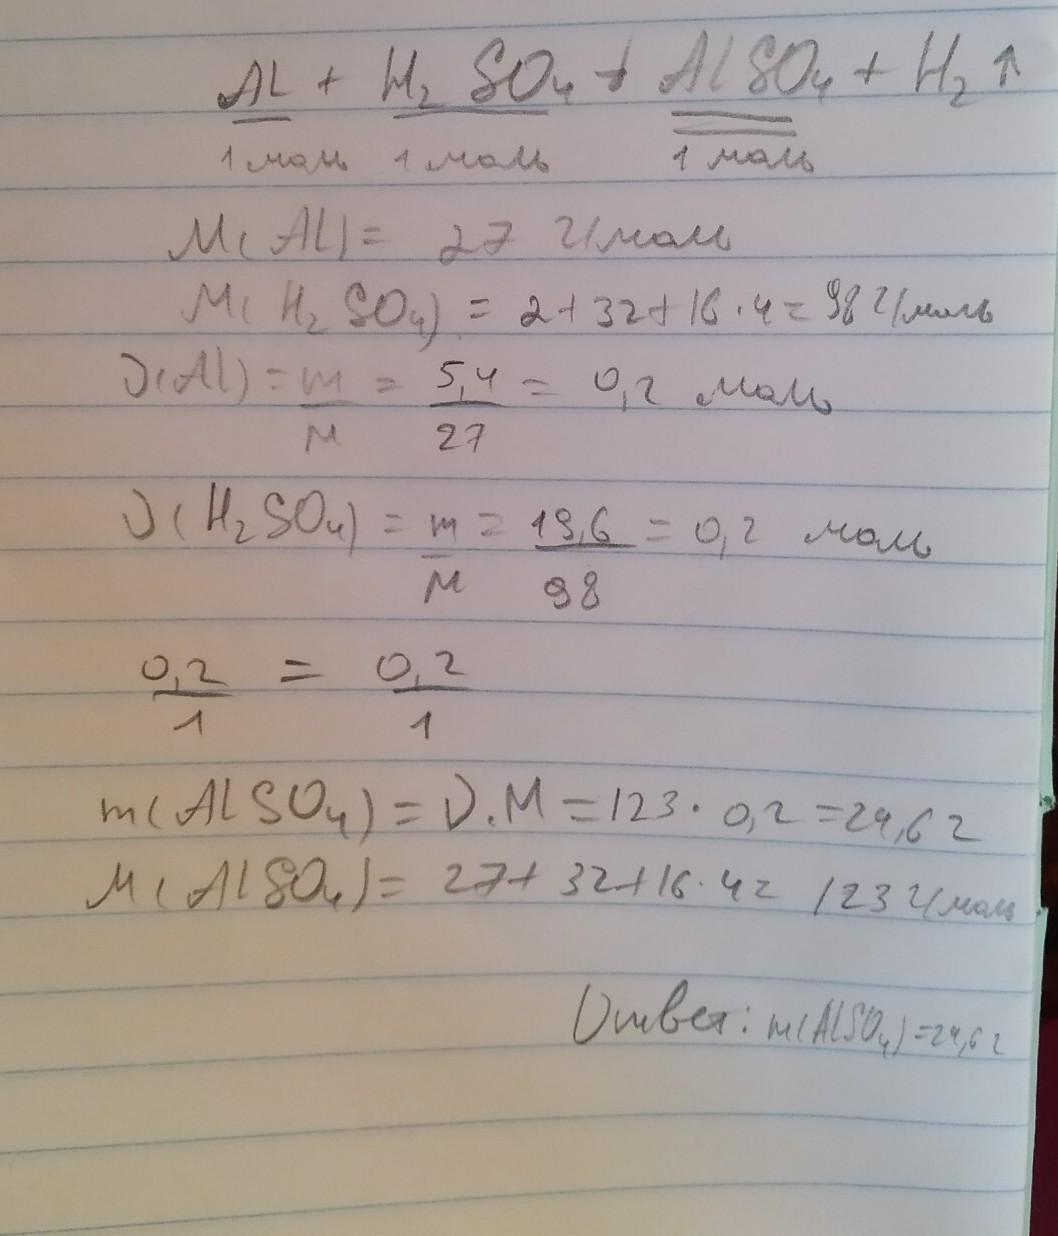 Al + H₂SO₄ → AlSO₄ + H₂↑
1 моль 1 моль 1 моль
M(Al) = 27 г/моль
M(H₂SO₄) = 2+32+16·4 = 98 г/моль
ν(Al) = m/M = 5,4/27 = 0,2 моль
ν(H₂SO₄) = m/M = 19,6/98 = 0,2 моль
0,2/1 = 0,2/1
m(AlSO₄) = ν·M = 123·0,2 = 24,6 г
M(AlSO₄) = 27+32+16·4 = 123 г/моль
Ответ: m(AlSO₄) = 24,6 г